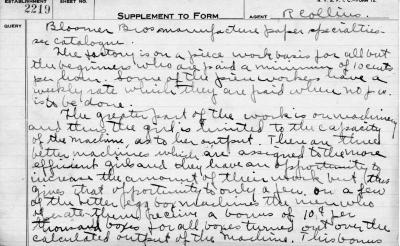 ESTABLISHMENT SHEET NO.
2219 SUPPLEMENT TO FORM AGENT R Collins.
QUERY
Bloomer Bros manufacture paper specialties-
see catalogue.
The factory is on a piece work basis for all but
the beginners who are paid a minimum of 10 cents
per hour. Some of the piece workers have a
weekly rate which they are paid when no p.w.
is to be done.
The greater part of the work is on machinery
and thus the girl is limited to the capacity
of the machine, as to her output. There are three
better machines which are assigned to the more
efficient girls and they have an opportunity to
increase the amount of their work but this
gives that opportunity to only a few. On a few
of the better egg box machines the men who
operate them receive a bonus of 10¢ per
thousand boxes for all boxes turned out over the
calculated output of the machine. This bonus